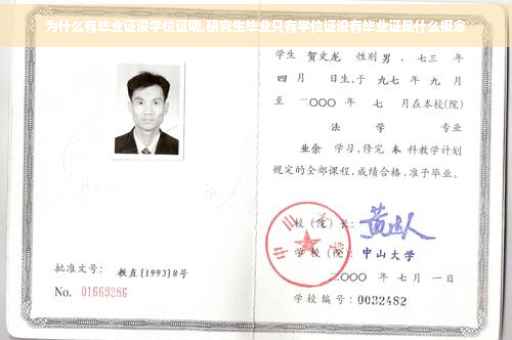 为什么有毕业证没学位证呢,研究生毕业只有学位证没有毕业证是什么概念
学生 贺文龙 性别 男, 七三 年
四 月 日生, 于 九七 年 九 月
至 二〇〇〇 年 七 月在本校(院)
法 学 专业
业余 学习, 修完 本 科教学计划
规定的全部课程, 成绩合格, 准予毕业。
校(院)长:
学校(院): 中山大学
二〇〇〇 年 七 月 一 日
学校编号: 0032482
批准文号: 教直[1993]8号
No. 01669286